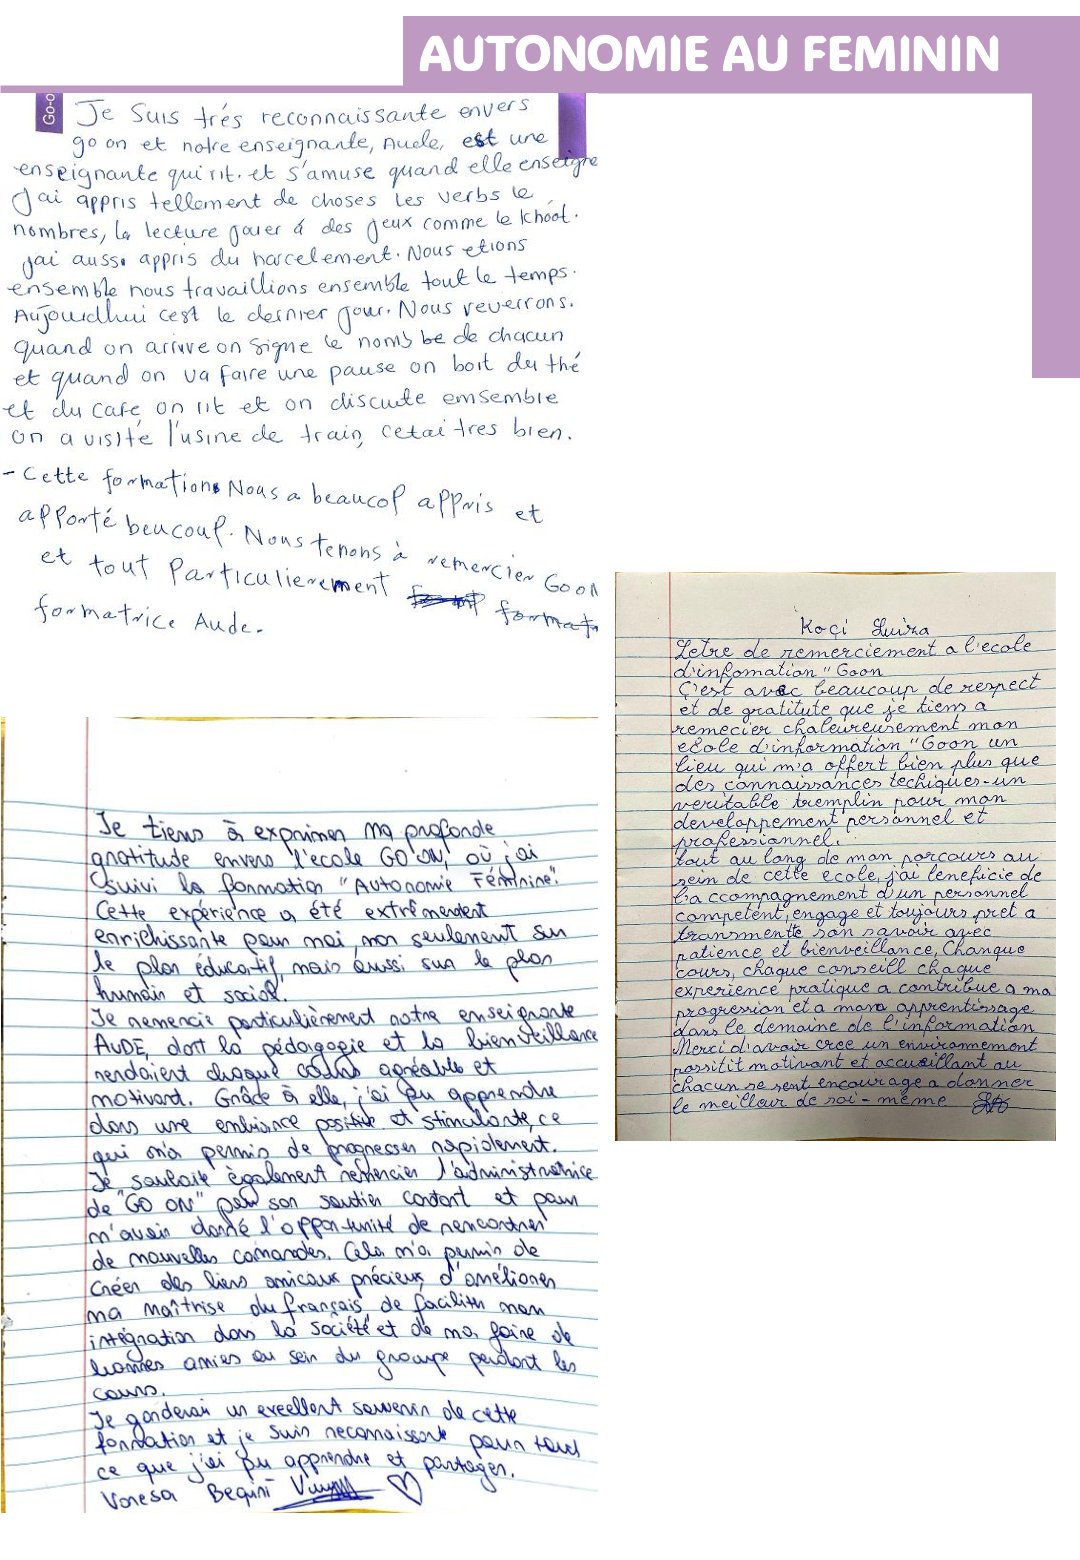 AUTONOMIE AU FEMININ
Go-o
Je Suis trés reconnaissante envers
go on et notre enseignante, Aude, est une
enseignante qui rit. et s'amuse quand elle enseigne
J'ai appris tellement de choses les verbs le
nombres, la lecture jouer á des jeux comme le khoot.
jai aussi appris du harcelement. Nous etions
ensemble nous travaillions ensemble tout le temps.
Aujourdhui cest le dernier jour. Nous reverrons.
quand on arrive on signe le noms be de chacun
et quand on va faire une pause on boit du thé
et du cafe on rit et on discute emsemble
on a visité l'usine de train, cetai tres bien.
- Cette formations Nous a beaucop appris et
apporté beucoup. Nous tenons à remercier Goon
et tout Particulierement format
formatrice Aude.
Koçi Luiza
Letre de remerciement a l'ecole
d'infomation "Goon
C'est avec beaucoup de respect
et de gratitute que je tiens a
remecier chaleureusement mon
ecole d'information "Goon un
lieu qui m'a offert bien plus que
des connaissances techiques-un
veritable tremplin pour mon
developpement personnel et
professionnel.
tout au long de mon parcours au
sein de cette ecole, j'ai leneficie de
l'a ccompagnement d'un personnel
competent, engage et toujours pret a
transmentte son savoir avec
patience et bienveillance, Chanque
cours, chaque conseill chaque
experience pratique a contribue a ma
progression et a mon apprentissage
dans le demaine de l'information
Merci d'avoir cree un environnement
possitit motivant et accueillant au
chacun se sent encourage a donner
le meilleur de soi-même
Je tiens à exprimer ma profonde
gratitude envers l'ecole GO'ON, où j'ai
suivi la formation "Autonomie Féminine".
Cette expérience a été extrêmement
enrichissante pour moi, non seulement sur
le plan éducatif, mais aussi sur le plan
humain et social.
Je remercie particulièrement notre enseignante
AUDE, dont la pédagogie et la bienveillance
rendaient chaque cours agréable et
motivant. Grâce à elle, j'ai pu apprendre
dans une ambiance positive et stimulante, ce
qui m'a permis de progresser rapidement.
Je souhaite également remercier l'administratrice
de "GO ON" pour son soutien constant et pour
m'avoir donné l'opportunité de rencontrer
de nouvelles camarades. Cela m'a permis de
créer des liens amicaux précieux, d'améliorer
ma maîtrise du français, de faciliter mon
intégration dans la société et de ma faire de
bonnes amies au sein du groupe pendant les
cours.
Je garderai un excellent souvenir de cette
formation et je suis reconnaissante pour tout
ce que j'ai pu apprendre et partager.
Vanesa Beqiri